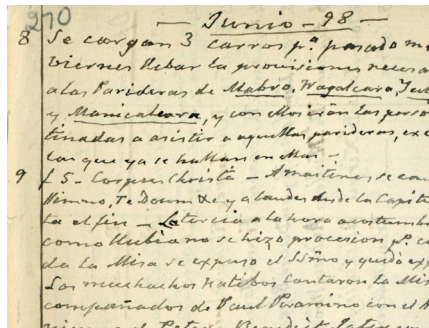 270
— Junio - 98 —
8 Se cargan 3 carros pª pasado m
viernes llebar la provisiones neces
a las Parideras de Mabro, Wagalcara,
y Manicaleara, y con Moisión las perso
tinadas a asistir a aquellas parideras, ex
las que ya se hallan en ellas —
9 f. S. - Corpus Christi -
Himno, Te Deum &c y a laudes desde la Capit
ta el fin — La tercia a la hora acostumb
como llubia no se hizo procesion pº c
da la Misa se expuso el SSmo y quedó ex
Los muchachos Natibos cantaron la Mis
compañados de Paul Piramino con el